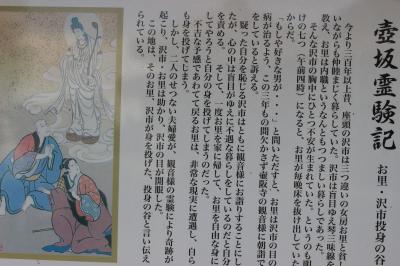 壺坂霊験記
お里・沢市投身の谷
今より三百年以上昔、座頭の沢市は三つ違いの女房お里と貧し
いながらも仲睦まじく暮らしていた。沢市は盲目ゆえ琴三味線を
教え、お里は内職というなんともつつましい暮らしであった。
そんな沢市の胸中にひとつ不安が生まれていた。というのも明
けの七つ(午前四時)になると、お里が毎晩床を抜け出ていた
からだ。
「もしや好きな男が・・・」と問いただすと、お里は沢市の目の
病が治るよう、この三年もの間欠かさず壷阪寺の観音様に朝詣で
をしていると訴える。
疑った自分を恥じる沢市はともに観音様にお詣りすることにし
たが、心の中は盲目がゆえに不遇な暮らしをしているのだと自分
を責める。そして、一度お里を家に帰して、お里を自由な身に
してやろうと自分の身を投げてしまうのだった。
不吉な予感であわてて戻るお里は、非常な現実に遭遇し、自ら
も身を投げてしまう。
しかし、二人のせつない夫婦愛が、観音様の霊験により奇跡が
起こり、沢市・お里は助かり、沢市の目が開眼した。
この地は、そのお里、沢市が身を投げた、投身の谷と言い伝え
られている。